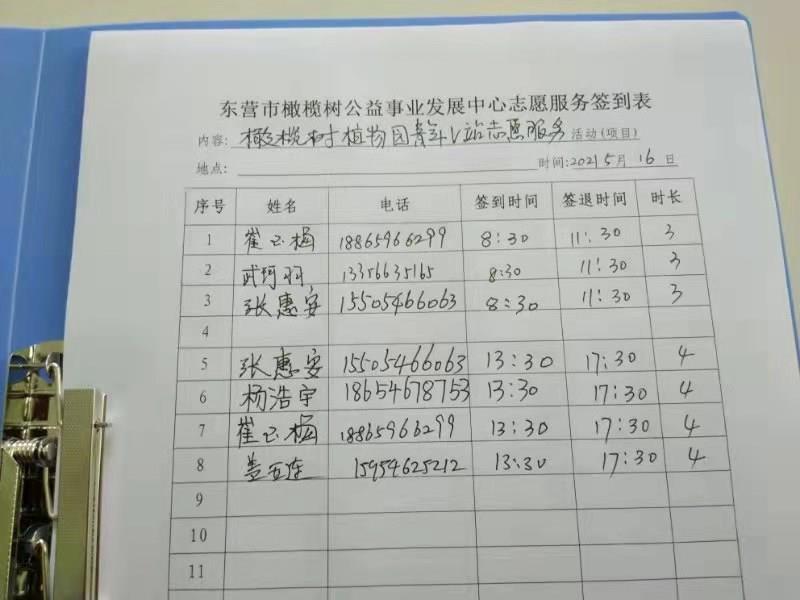 东营市橄榄树公益事业发展中心志愿服务签到表
内容: 橄榄树植物园青年V站志愿服务 活动(项目)
地点: 时间:2021 5月 16日
序号 姓名 电话 签到时间 签退时间 时长
1 崔玉梅 18865966299 8:30 11:30 3
2 武珂羽 13356635165 8:30 11:30 3
3 张惠安 15505466063 8:30 11:30 3
4
5 张惠安 15505466063 13:30 17:30 4
6 杨浩宇 18654678753 13:30 17:30 4
7 崔玉梅 18865966299 13:30 17:30 4
8 15954625212 13:30 17:30 4
9
10
11